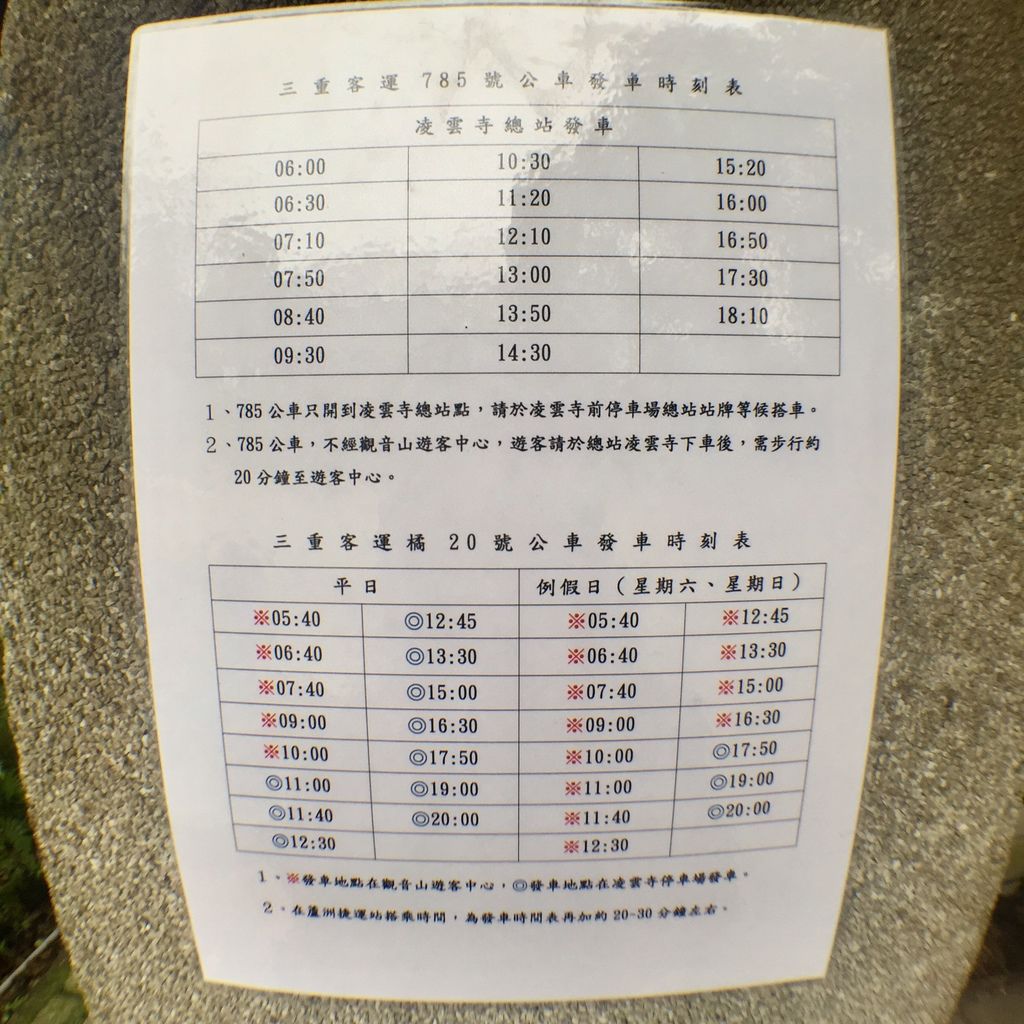 三重客運 785 號公車發車時刻表
凌雲寺總站發車
06:00 10:30 15:20
06:30 11:20 16:00
07:10 12:10 16:50
07:50 13:00 17:30
08:40 13:50 18:10
09:30 14:30
1、785 公車只開到凌雲寺總站點，請於凌雲寺前停車場總站站牌等候搭車。
2、785 公車，不經觀音山遊客中心，遊客請於總站凌雲寺下車後，需步行約
20 分鐘至遊客中心。
三重客運橘 20 號公車發車時刻表
平日 例假日（星期六、星期日）
※05:40 ◎12:45 ※05:40 ※12:45
※06:40 ◎13:30 ※06:40 ※13:30
※07:40 ◎15:00 ※07:40 ※15:00
※09:00 ◎16:30 ※09:00 ※16:30
※10:00 ◎17:50 ※10:00 ◎17:50
◎11:00 ◎19:00 ※11:00 ◎19:00
◎11:40 ◎20:00 ※11:40 ◎20:00
◎12:30 ※12:30
1、※發車地點在觀音山遊客中心，◎發車地點在凌雲寺停車場發車。
2、在蘆洲捷運站搭乘時間，為發車時間表再加約 20-30 分鐘左右。